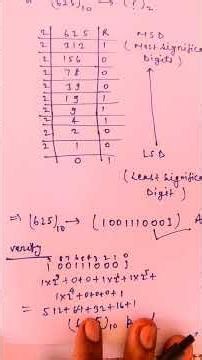 (625)₁₀ → (?)₂
2 | 625 | R
2 | 312 | 1
2 | 156 | 0
2 | 78 | 0
2 | 39 | 0
2 | 19 | 1
2 | 9 | 1
2 | 4 | 1
2 | 2 | 0
2 | 1 | 0
0 | 1
MSD
(Most Significa
Digits)
LSD
(Least Significa
Digit)
⇒ (625)₁₀ → (1001110001)
verify
9 8 7 6 5 4 3 2 1 0
1 0 0 1 1 1 0 0 0 1
1×2⁹+0+0+1×2⁶+1×2⁵+
1×2⁴+0+0+0+1
= 512+64+32+16+1